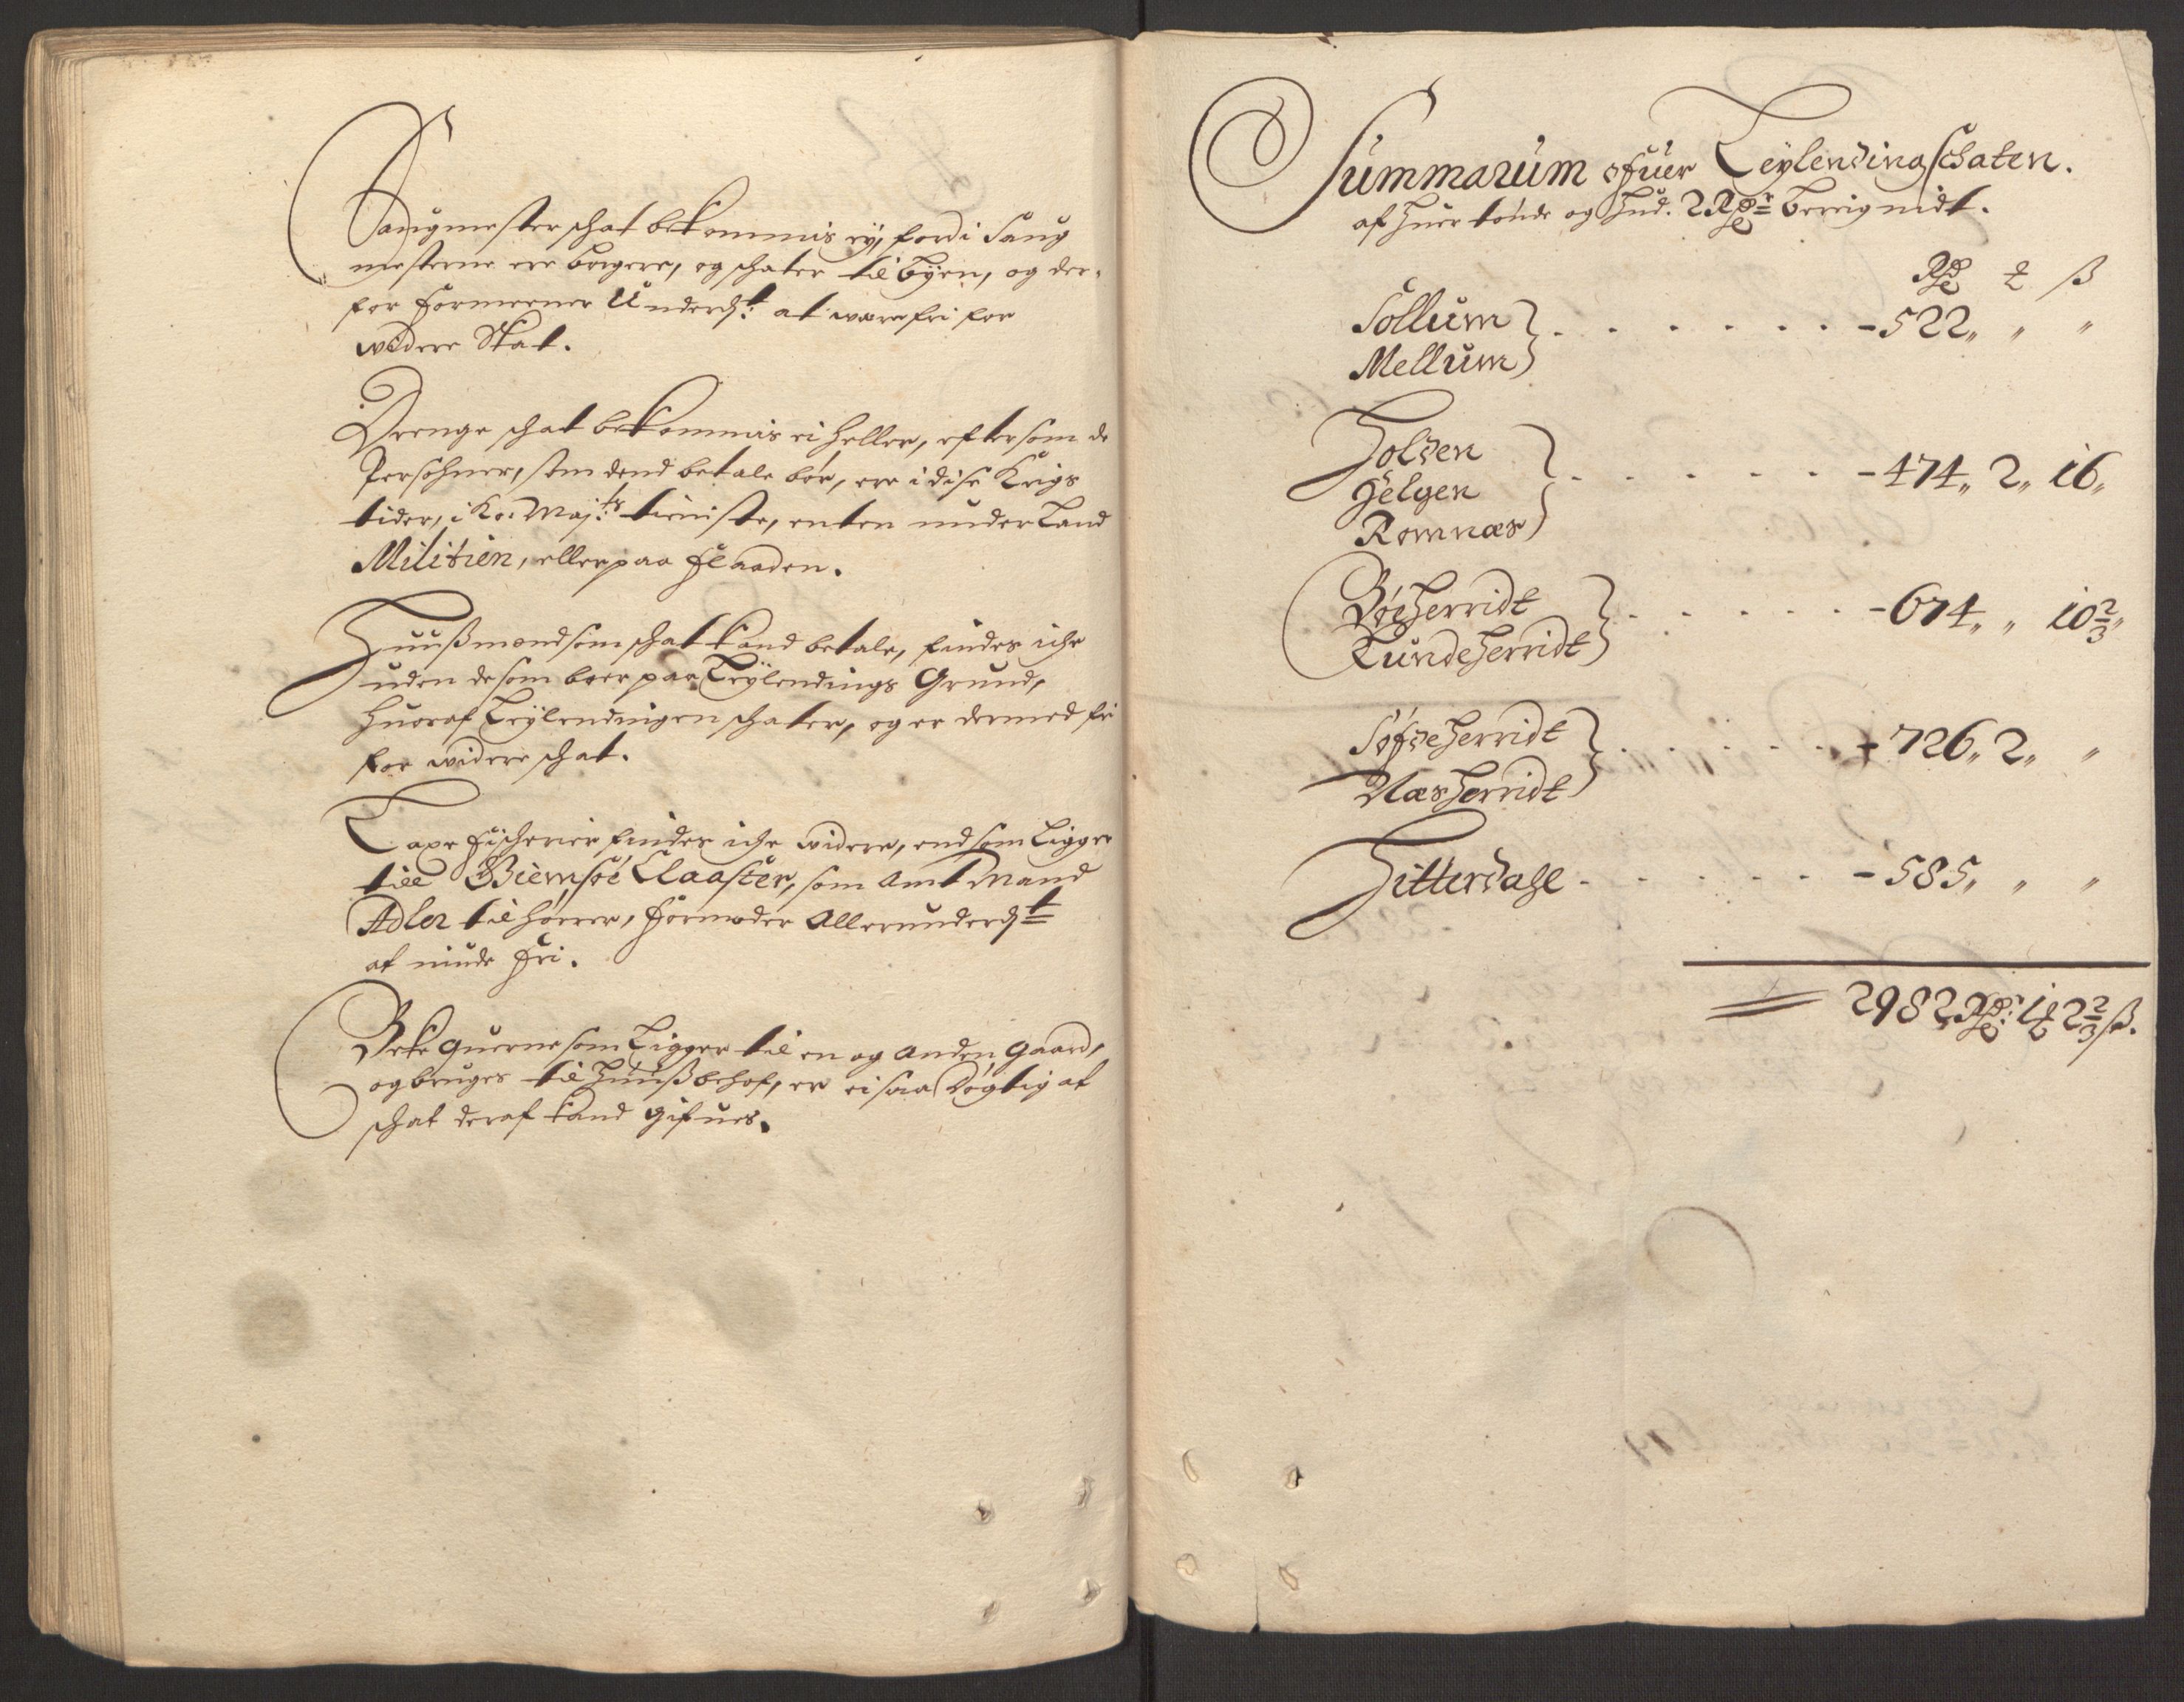 Saugmester schat bekommis ey, fordi Saug
mesterne ere borgere, og schater til Byen, og der-
for formeener Underd:t at were fri for
widere Skat.
Drenge schat bekommis ei heller, eftersom de
Persohner, som dend betale bør, ere i dise Krigs
tider, i Ko: Maj:ts tieniste, enten under Land
Militien, eller paa Flaaden.
Huußmend som schat kand betale, findes iche
uden de som boer paa Leylendings Grund,
huoraf Leylendingen schater, og er dermed fri
for widere schat.
Laxe fischerier findes iche widere, end som Ligger
till Giemsøe Claaster, som Amtmand
Adler til hørrer, formoder Allerunderd:t
at niude fri.
Beke querne som Ligger til en og anden gaard,
og bruges til Huuß behof, er ei saa døgtig at
schat deraf kand gifues.
Summarum ofuer Leylending schaten.
af huer tønde og Hud. 2 Rdr bereignidt.
Rd ß
Sollum
Mellum - 522,, ,, ,,
Holden
Helgen - 474,, 2,, 16,,
Romnæs
Bøeherridt
Lundeherridt - 674,, ,, 10 2/3,,
Søfdeherridt
Næsherridt - 726,, 2,, ,,
Hitterdahl - 585,, ,, ,,
2982 Rdr: 1 2 2/3 ß.